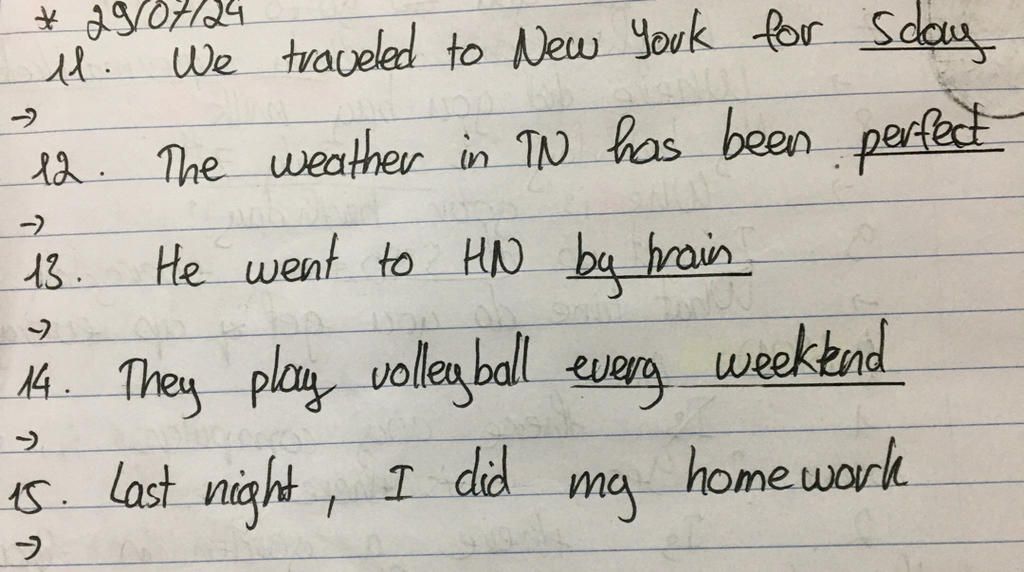 * 29/07/24
11. We traveled to New York for 5 day
→
12. The weather in TN has been perfect
→
13. He went to HN by train
→
14. They play volleyball every weekend
→
15. Last night, I did my homework
→